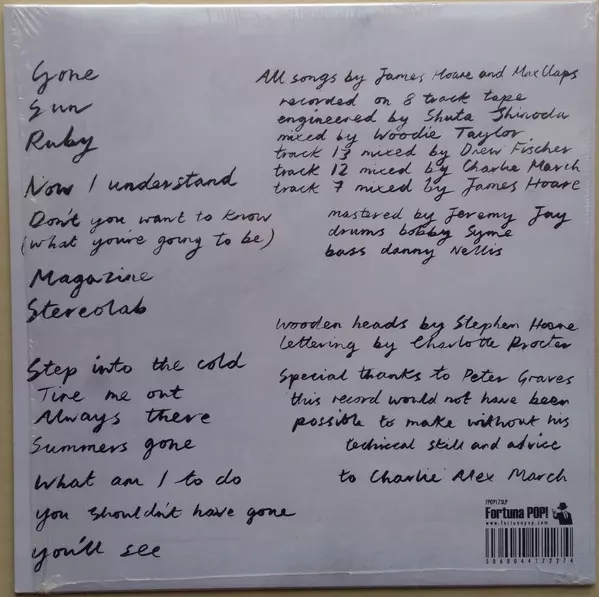 Gone
Sun
Ruby
Now I understand
Don't you want to know
(what you're going to be)
Magazine
Stereolab
Step into the cold
Tire me out
Always there
Summers gone
What am I to do
you shouldn't have gone
you'll see
All songs by James Hoare and Max Claps
recorded on 8 track tape
engineered by Shuta Shinoda
mixed by Woodie Taylor
track 13 mixed by Drew Fischer
track 12 mixed by Charlie March
track 7 mixed by James Hoare
mastered by Jeremy Jay
drums bobby Syme
bass danny Nellis
Wooden heads by Stephen Hoare
lettering by Charlotte Procter
Special thanks to Peter Graves
this record would not have been
possible to make without his
technical skill and advice
to Charlie Alex March
FPOP173LP
Fortuna POP!
www.fortunapop.com